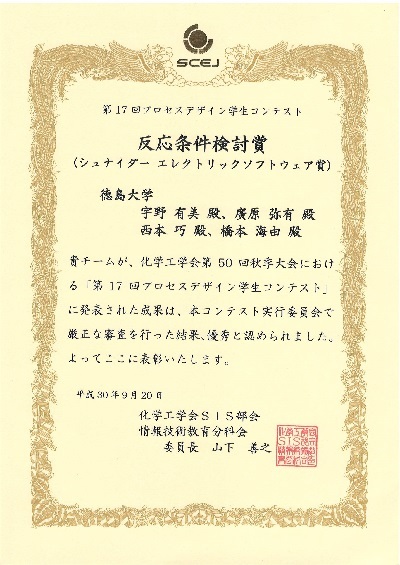 SCEJ
第17回プロセスデザイン学生コンテスト
反応条件検討賞
（シュナイダー エレクトリックソフトウェア賞）
徳島大学
宇野 有美 殿、廣原 弥有 殿
西本 巧 殿、橋本 海由 殿
貴チームが、化学工学会第50回秋季大会におけ
る「第17回プロセスデザイン学生コンテスト」
に発表された成果は、本コンテスト実行委員会で
厳正な審査を行った結果、優秀と認められました。
よってここに表彰いたします。
平成30年9月20日
化学工学会SIS部会
情報技術教育分科会
委員長 山下 善之